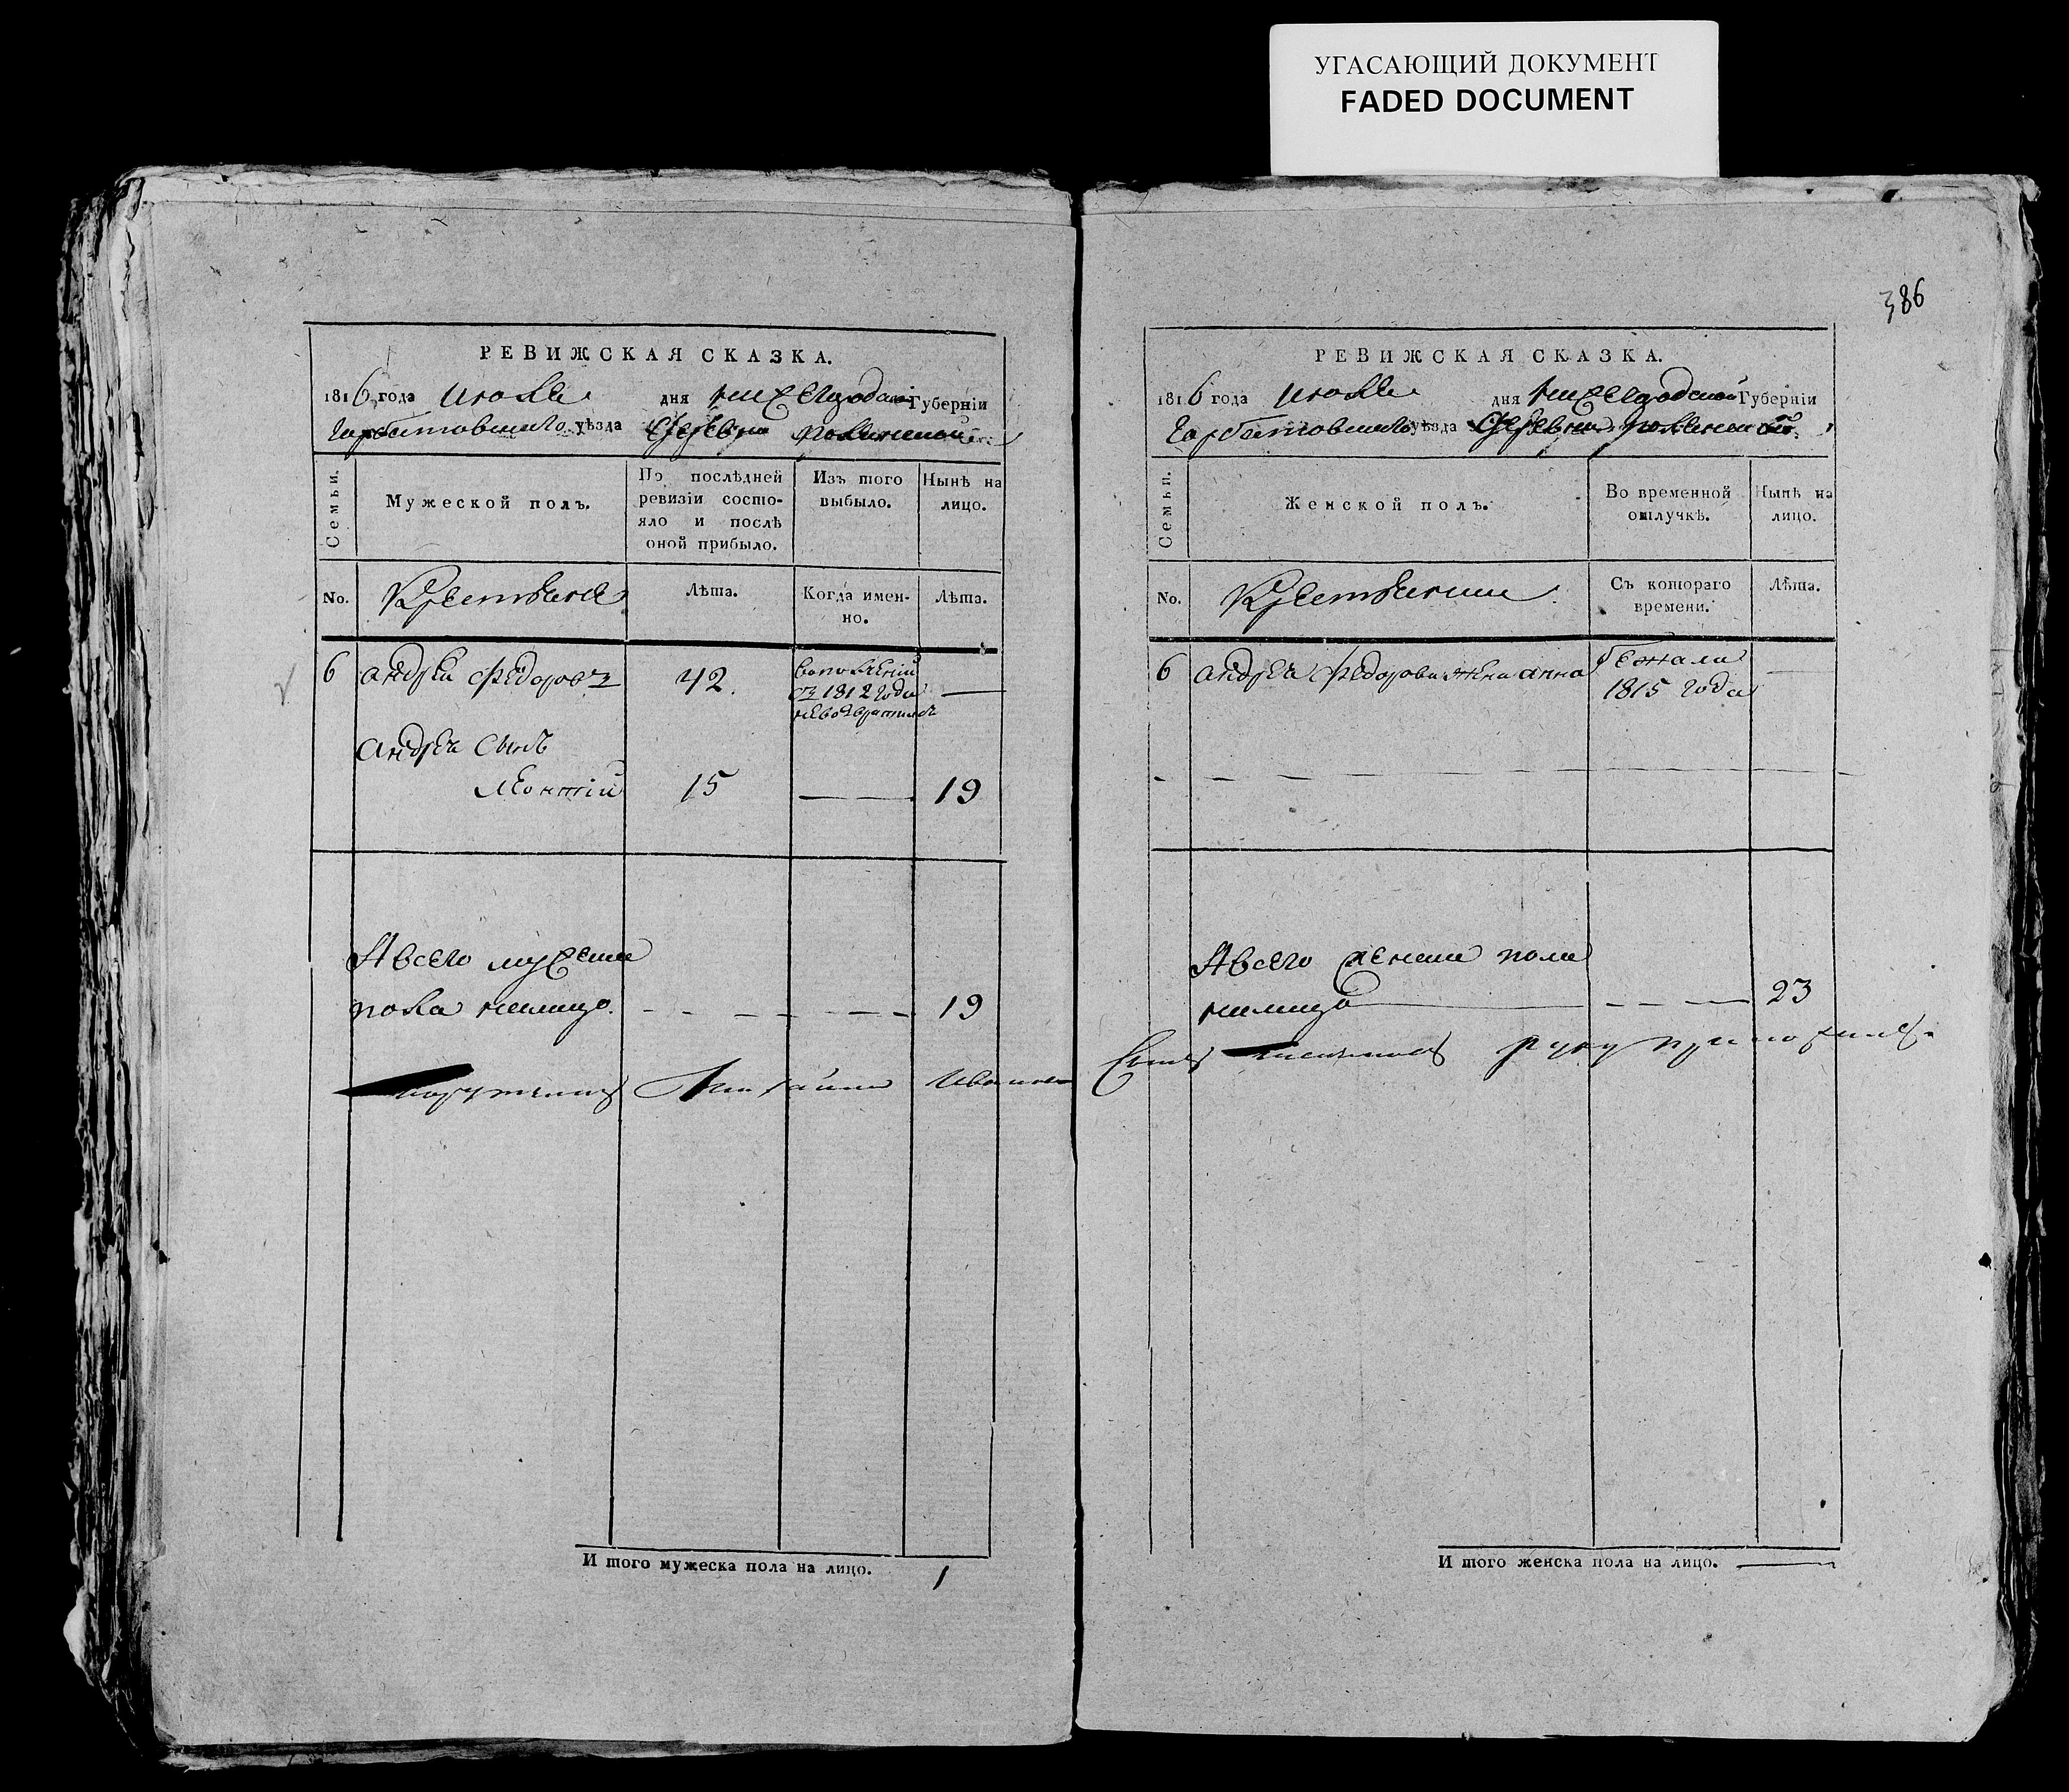 УГАСАЮЩИЙ ДОКУМЕНТ
FADED DOCUMENT
РЕВИЖСКАЯ СКАЗКА.
1816 года июля дня нижегородской Губерніи
Горбатовского уѣзда деревни
Семьи.
Мужеской полъ.
По послѣдней
ревизіи состо-
яло и послѣ
оной прибыло.
Изъ того
выбыло.
Нынѣ на
лицо.
No.
Крестьяне
Лѣта.
Когда имен-
но.
Лѣта.
6
андрей Федоровъ
42.
въ
съ 1812 года
невозвратился
андрея сынъ
леонтій
15
19
А всего мужеска
пола налицо.
19
Михайла Иванов
И того мужеска пола на лицо. 1
386
РЕВИЖСКАЯ СКАЗКА.
1816 года июля дня нижегородской Губерніи
Горбатовского уѣзда деревни
Семьи.
Женской полъ.
Во временной
отлучкѣ.
Нынѣ на
лицо.
No.
Крестьянки
Съ котораго
времени.
Лѣта.
6
андрея Федорова жена анна
бежала
1815 года
А всего женска пола
налицо
23
Сынъ руку приложилъ
И того женска пола на лицо.